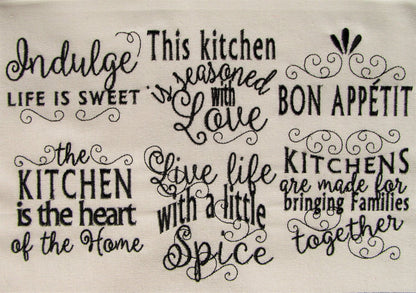 Indulge
LIFE IS SWEET
This kitchen
is seasoned
with
Love
BON APPÉTIT
the
KITCHEN
is the heart
of the Home
Live life
with a little
Spice
KITCHENS
are made for
bringing Families
together